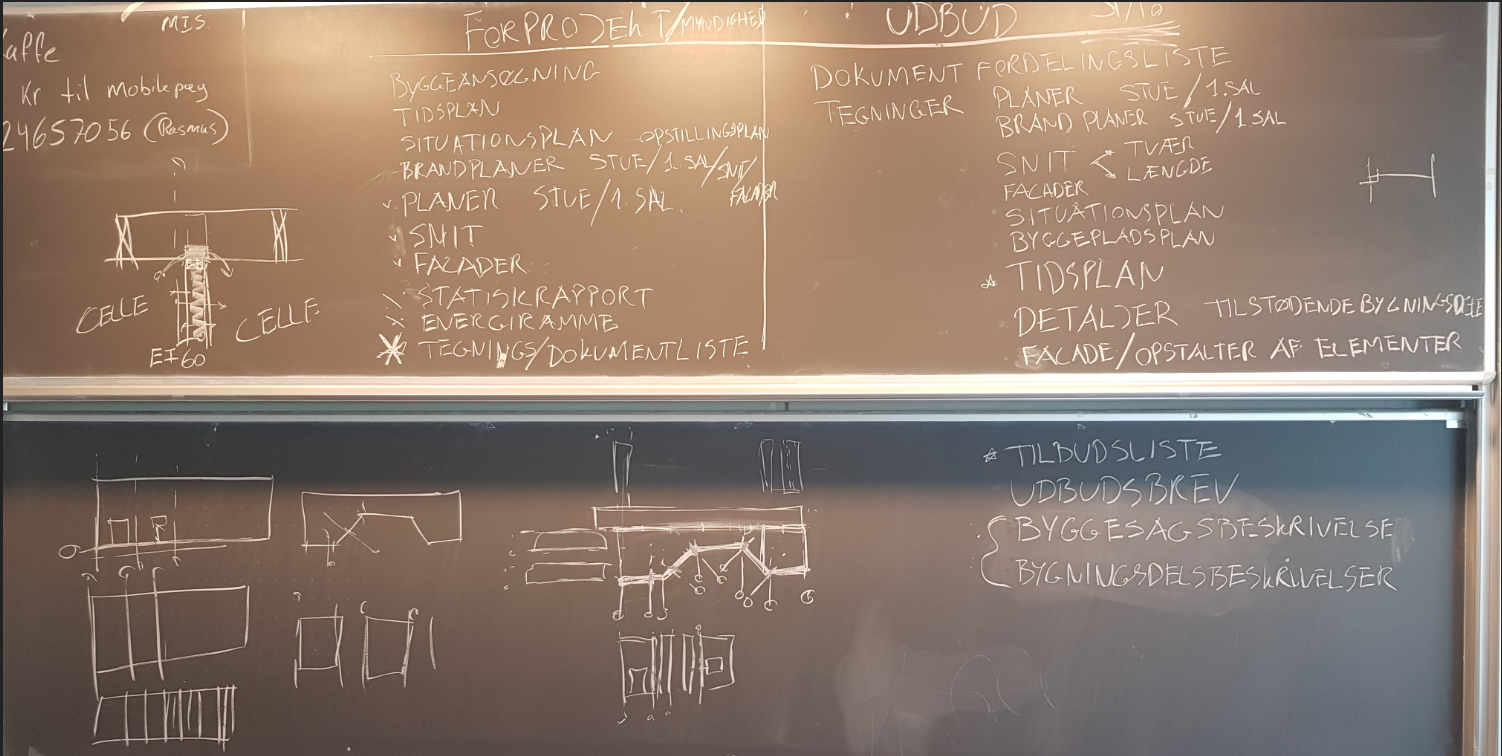 MIS.
Kaffe
Kr til mobilepay
24657056 (Rasmus)
CELLE
CELLE
EI60
FORPROJEKT/MYNDIGHED
BYGGEANSØGNING
TIDSPLAN
SITUATIONSPLAN OPSTILLINGSPLAN
BRANDPLANER STUE/1.SAL/SNIT/
FACADER
PLANER STUE/1.SAL.
SNIT
FACADER
STATISKRAPPORT
ENERGIRAMME
TEGNINGS/DOKUMENTLISTE
UDBUD 31/10
DOKUMENT FORDELINGSLISTE
TEGNINGER PLANER STUE/1.SAL
BRAND PLANER STUE/1 SAL
SNIT < TVÆR
LÆNGDE
FACADER
SITUATIONSPLAN
BYGGEPLADSPLAN
TIDSPLAN
DETALJER TILSTØDENDE BYGNINGSDELE
FACADE/OPSTALTER AF ELEMENTER
TILBUDSLISTE
UDBUDSBREV
BYGGESAGSBESKRIVELSE
BYGNINGSDELSBESKRIVELSER